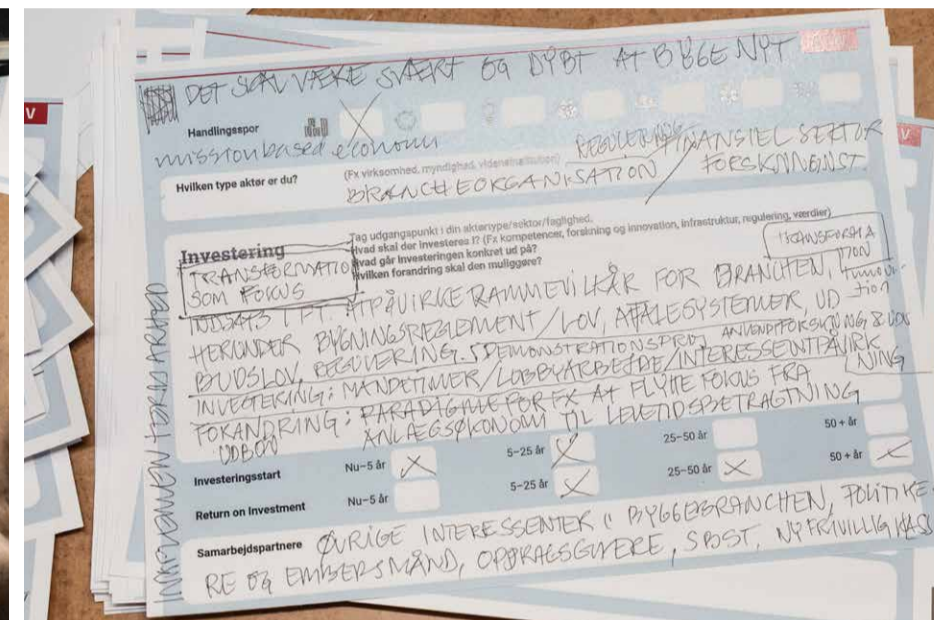 DET SKAL VÆRE SVÆRT OG DYRT AT BYGGE NYT
Handlingsspor
missionbased economi
Hvilken type aktør er du?
(Fx virksomhed, myndighed, vidensinstitution)
BRANCHEORGANISATION
REGULERING
FINANSIEL SEKTOR
Investering
Tag udgangspunkt i din aktørtype/sektor/faglighed.
Hvad skal der investeres i? (Fx kompetencer, forskning og innovation, infrastruktur, regulering, værdier)
Hvad går investeringen konkret ud på?
Hvilken forandring skal den muliggøre?
TRANSFORMATION
SOM FOKUS
TRANSFORMA
TION
INDSATS I FT. AT PÅVIRKE RAMMEVILKÅR FOR BRANCHEN,
HERUNDER BYGNINGSREGLEMENT/LOV, AFTALESYSTEMER, UD
BUDSLOV, REGULERING. DEMONSTRATIONSPROJ, ANVENDT FORSKNING & UDV
INVESTERING: MANDETIMER/LOBBYARBEJDE/INTERESSENTPÅVIRK
NING
FORANDRING: PARADIGME FOR FX AT FLYTTE FOKUS FRA
UDBUD ANLÆGSØKONOMI TIL LEVETIDSBETRAGTNING
Investeringsstart
Nu–5 år
5–25 år
25–50 år
50 + år
Return on Investment
Nu–5 år
5–25 år
25–50 år
50 + år
Samarbejdspartnere
ØVRIGE INTERESSENTER I BYGGEBRANCHEN, POLITIKE-
RE OG EMBEDSMÆND, OPDRAGSGIVERE, SBST, NY FRIVILLIG KLASS
V
V